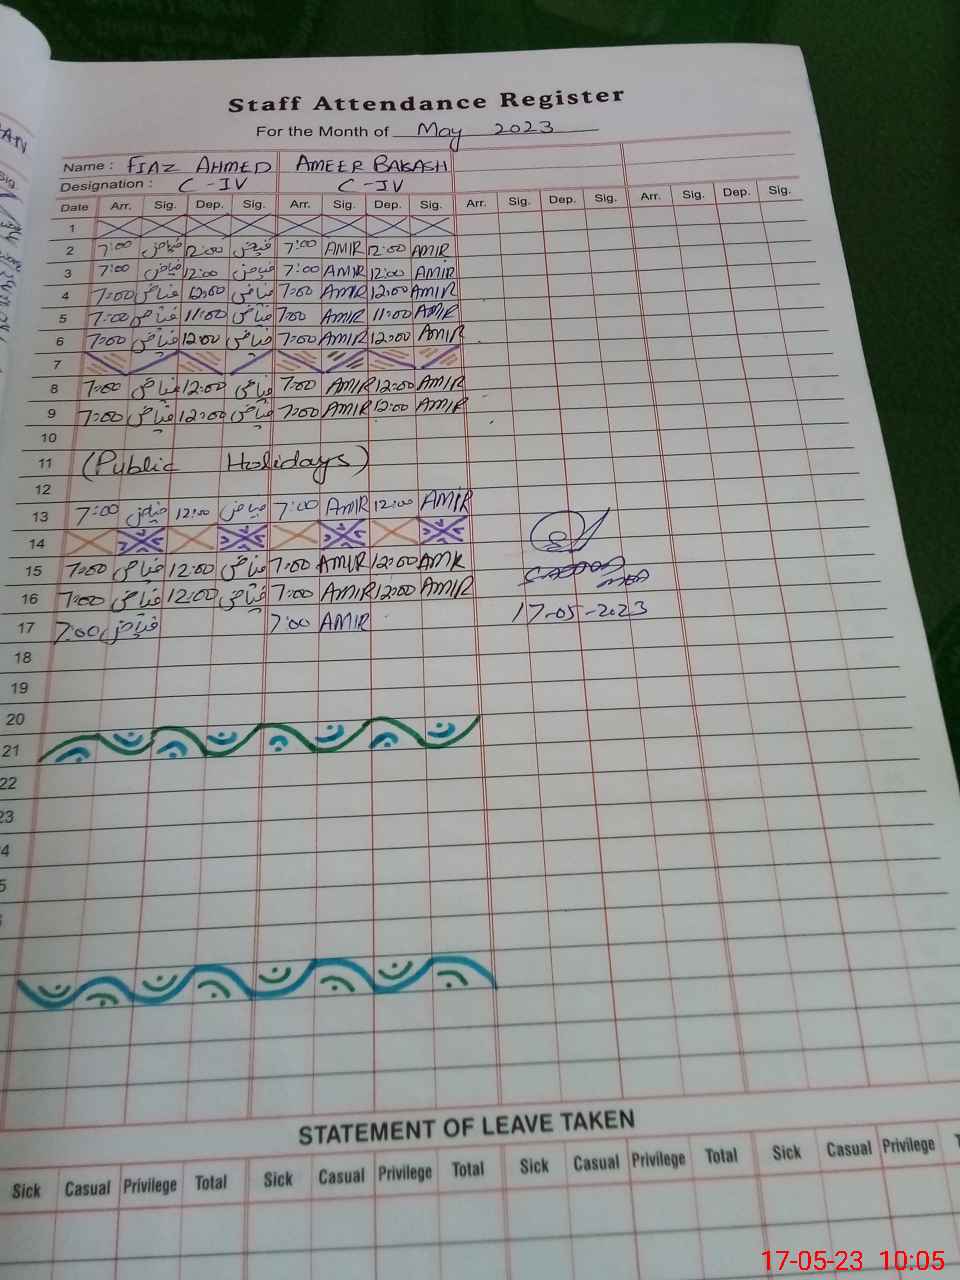 Staff Attendance Register
For the Month of May 2023
Name : FIAZ AHMED AMEER BAKASH
Designation : C-IV C-IV
Date Arr. Sig. Dep. Sig. Arr. Sig. Dep. Sig. Arr. Sig. Dep. Sig. Arr. Sig. Dep. Sig.
1
2 7:00 فیاض 12:00 فیاض 7:00 AMIR 12:00 AMIR
3 7:00 فیاض 12:00 فیاض 7:00 AMIR 12:00 AMIR
4 7:00 فیاض 12:00 فیاض 7:00 AMIR 12:00 AMIR
5 7:00 فیاض 11:00 فیاض 7:00 AMIR 11:00 AMIR
6 7:00 فیاض 12:00 فیاض 7:00 AMIR 12:00 AMIR
7
8 7:00 فیاض 12:00 فیاض 7:00 AMIR 12:00 AMIR
9 7:00 فیاض 12:00 فیاض 7:00 AMIR 12:00 AMIR
10
11 (Public Holidays)
12
13 7:00 فیاض 12:00 فیاض 7:00 AMIR 12:00 AMIR
14
15 7:00 فیاض 12:00 فیاض 7:00 AMIR 12:00 AMIR
16 7:00 فیاض 12:00 فیاض 7:00 AMIR 12:00 AMIR 17-05-2023
17 7:00 فیاض 7:00 AMIR
18
19
20
21
22
23
STATEMENT OF LEAVE TAKEN
Sick Casual Privilege Total Sick Casual Privilege Total Sick Casual Privilege Total Sick Casual Privilege
17-05-23 10:05